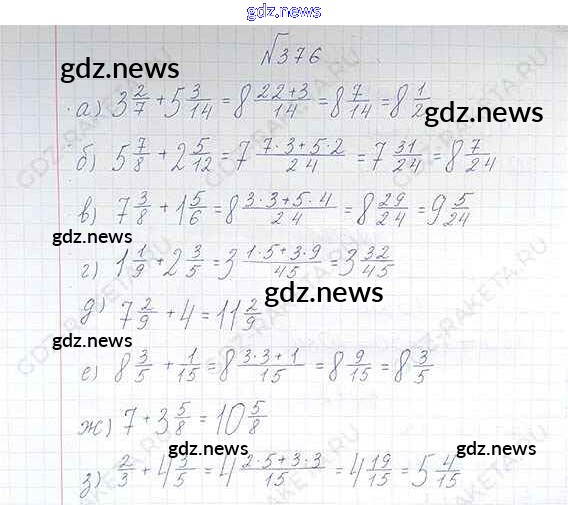 gdz.news
№376
gdz.news
а) 3 2/7 + 5 3/14 = 8 (22+3)/14 = 8 7/14 = 8 1/2
gdz.news
б) 5 7/8 + 2 5/12 = 7 (7·3+5·2)/24 = 7 31/24 = 8 7/24
в) 7 3/8 + 1 5/6 = 8 (3·3+5·4)/24 = 8 29/24 = 9 5/24
gdz.news
г) 1 1/9 + 2 3/5 = 3 (1·5+3·9)/45 = 3 32/45
gdz.news
д) 7 2/9 + 4 = 11 2/9
gdz.news
е) 8 3/5 + 1/15 = 8 (3·3+1)/15 = 8 9/15 = 8 3/5
ж) 7 + 3 5/8 = 10 5/8
gdz.news gdz.news
з) 2/3 + 4 3/5 = 4 (2·5+3·3)/15 = 4 19/15 = 5 4/15
GDZ-RAKETA.RU